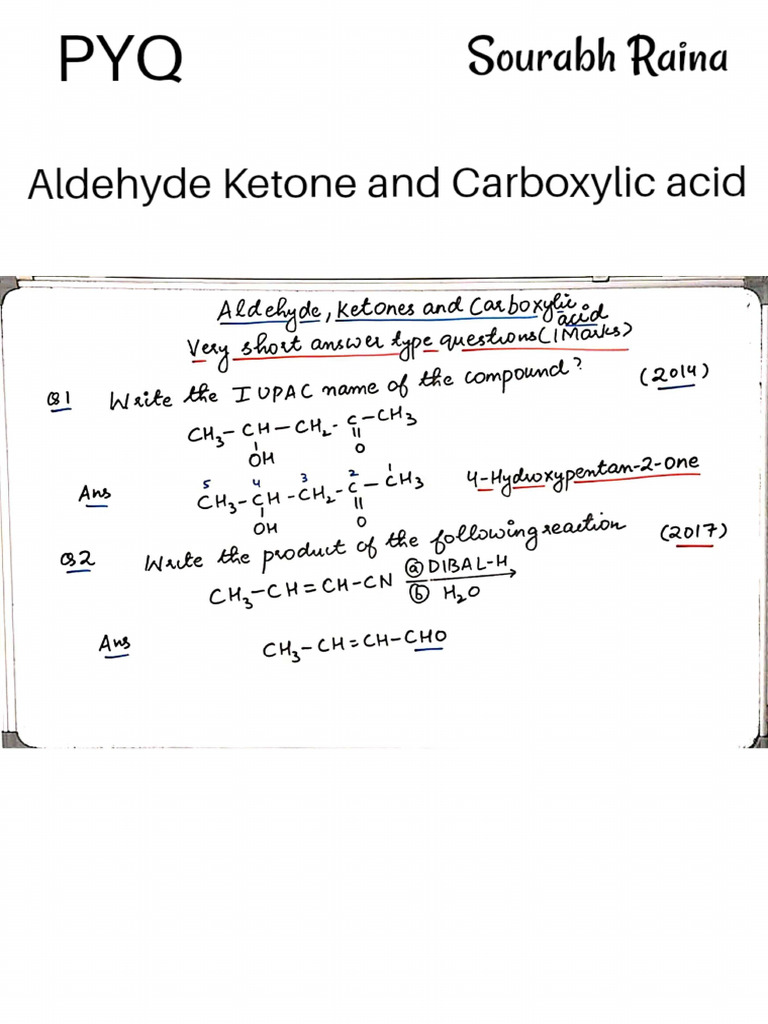 PYQ
Sourabh Raina
Aldehyde Ketone and Carboxylic acid
Aldehyde, Ketones and Carboxylic acid
Very short answer type questions (1 Marks)
Q1 Write the IUPAC name of the compound? (2014)
CH₃-CH-CH₂-C-CH₃
OH O
5 4 3 2 1
Ans CH₃-CH-CH₂-C-CH₃ 4-Hydroxypentan-2-one
OH O
Q2 Write the product of the following reaction (2017)
CH₃-CH=CH-CN ⓐ DIBAL-H
ⓑ H₂O
Ans CH₃-CH=CH-CHO